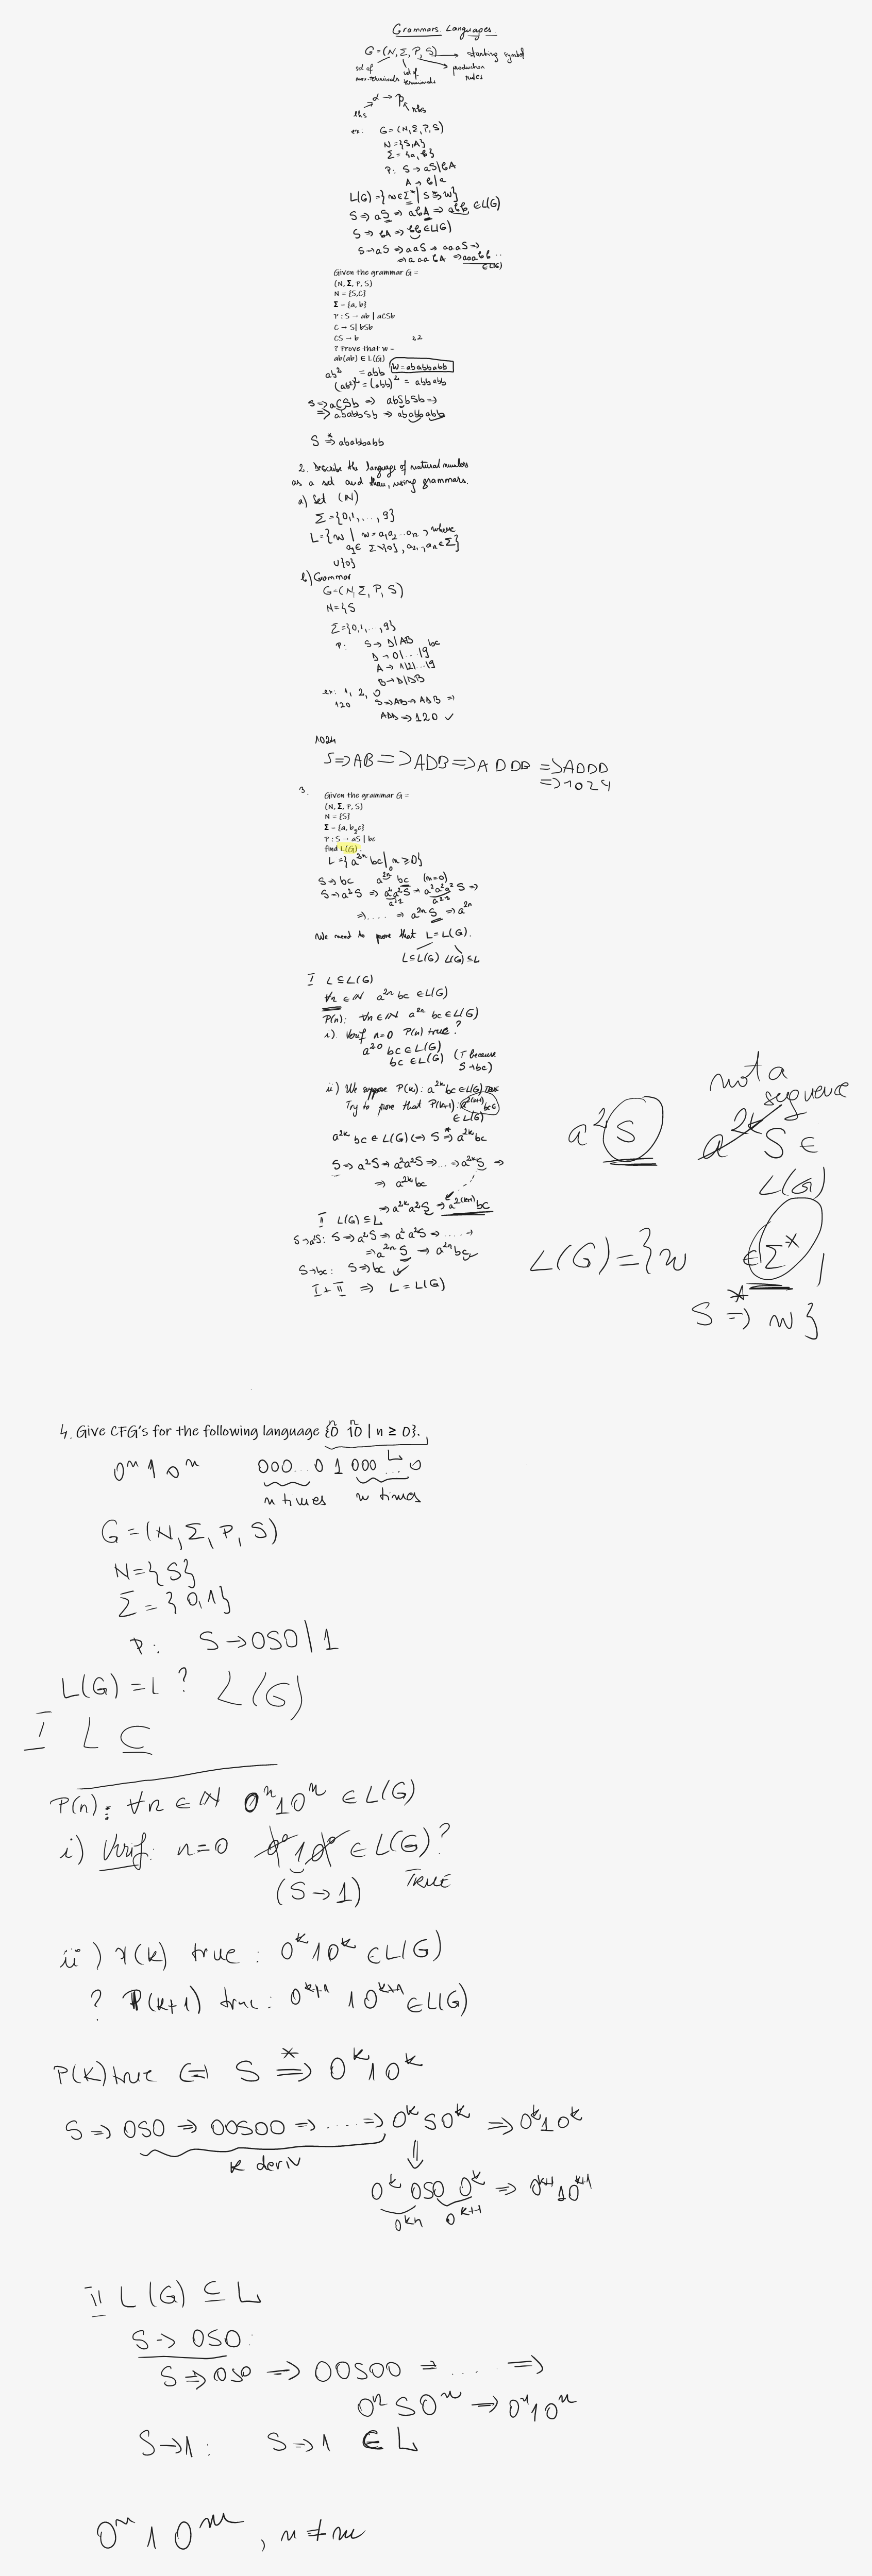 Grammars. Languages
G = (N, Σ, P, S) → starting symbol
set of non-terminals set of terminals production rules
α → β
lhs rhs
ex: G = (N, Σ, P, S)
N = {S, A}
Σ = {a, b}
P: S → aS | bA
A → b | a
L(G) = { w ∈ Σ* | S ⇒* w }
S ⇒ aS ⇒ abA ⇒ abb ∈ L(G)
S ⇒ bA ⇒ bb ∈ L(G)
S → aS ⇒ aaS ⇒ aaaS ⇒
⇒ aaabA ⇒ aaabb ..
∈ L(G)
Given the grammar G =
(N, Σ, P, S)
N = {S,C}
Σ = {a, b}
P : S → ab | aCSb
C → S | bSb
CS → b
? Prove that w =
ab(ab) ∈ L(G) 2 2
ab² = abb W = ababbabb
(ab²)² = (abb)² = abbabb
S ⇒ aCSb ⇒ abSbSb ⇒
⇒ ababbSb ⇒ ababbabb
S ⇒* ababbabb
2. Describe the language of natural numbers
as a set and then, using grammars.
a) Set (N)
Σ = {0,1, ..., 9}
L = { w | w = a₁a₂...aₙ, where
a₁ ∈ Σ \ {0}, a₂,..,aₙ ∈ Σ}
∪ {0}
b) Grammar
G = (N, Σ, P, S)
N = {S
Σ = {0,1, ..., 9}
P: S → D | AB bc
D → 0 | ... | 9
A → 1|2| ... 9
B → D | DB
ex: 1, 2, 0
120 S ⇒ AB ⇒ ADB ⇒
ADD ⇒ 120 ✓
1024
S ⇒ AB ⇒ ADB ⇒ ADDB ⇒ ADDD
⇒ 1024
3. Given the grammar G =
(N, Σ, P, S)
N = {S}
Σ = {a, b, c}
P : S → a²S | bc
find L(G).
L = { a²ⁿ bc | n ≥ 0}
S → bc a²⁰ bc (n=0)
S → a²S ⇒ a²a²S ⇒ a²a²a²S ⇒
a²·² a²·³
⇒ .... ⇒ a²ⁿ S ⇒ a²ⁿ
We need to prove that L = L(G).
L ⊆ L(G) L(G) ⊆ L
I L ⊆ L(G)
∀n ∈ ℕ a²ⁿ bc ∈ L(G)
P(n): ∀n ∈ ℕ a²ⁿ bc ∈ L(G)
i). Verif n=0 P(n) true?
a²·⁰ bc ∈ L(G)
bc ∈ L(G) (T because
S → bc)
ii) We suppose P(k): a²ᵏ bc ∈ L(G) TRUE
Try to prove that P(k+1): a²⁽ᵏ⁺¹⁾ bc
∈ L(G)
a²ᵏ bc ∈ L(G) ⇔ S ⇒* a²ᵏ bc
S ⇒ a²S ⇒ a²a²S ⇒ ... ⇒ a²ᵏS ⇒
⇒ a²ᵏbc
⇒ a²ᵏa²S ⇒ a²⁽ᵏ⁺¹⁾bc
II L(G) ⊆ L
S → a²S: S ⇒ a²S ⇒ a²a²S ⇒ .... ⇒
⇒ a²ⁿ S ⇒ a²ⁿ bc ✓
S → bc: S ⇒ bc ✓
I + II ⇒ L = L(G)
not a
sequence
a²S a²ᵏ S ∈
L(G)
L(G) = { w ∈ Σ* |
S ⇒* w }
4. Give CFG's for the following language {0ⁿ 10ⁿ | n ≥ 0}.
L
0ⁿ 1 0ⁿ 000...0 1 000 ... 0
n times n times
G = (N, Σ, P, S)
N = {S}
Σ = {0,1}
P: S → 0S0 | 1
L(G) = L ? L(G)
I L ⊆
P(n): ∀n ∈ ℕ 0ⁿ10ⁿ ∈ L(G)
i) Verif: n=0 0⁰10⁰ ∈ L(G)?
(S → 1) TRUE
ii) P(k) true : 0ᵏ10ᵏ ∈ L(G)
? P(k+1) true: 0ᵏ⁺¹ 10ᵏ⁺¹ ∈ L(G)
P(k) true ⇔ S ⇒* 0ᵏ10ᵏ
S ⇒ 0S0 ⇒ 00S00 ⇒ .... ⇒ 0ᵏS0ᵏ ⇒ 0ᵏ10ᵏ
k deriv ⇓
0ᵏ 0S0 0ᵏ ⇒ 0ᵏ⁺¹10ᵏ⁺¹
0ᵏ⁺¹ 0ᵏ⁺¹
II L(G) ⊆ L
S → 0S0:
S ⇒ 0S0 ⇒ 00S00 ⇒ .... ⇒
0ⁿS0ⁿ ⇒ 0ⁿ10ⁿ
S → 1: S ⇒ 1 ∈ L
0ⁿ 1 0ᵐ, n ≠ m